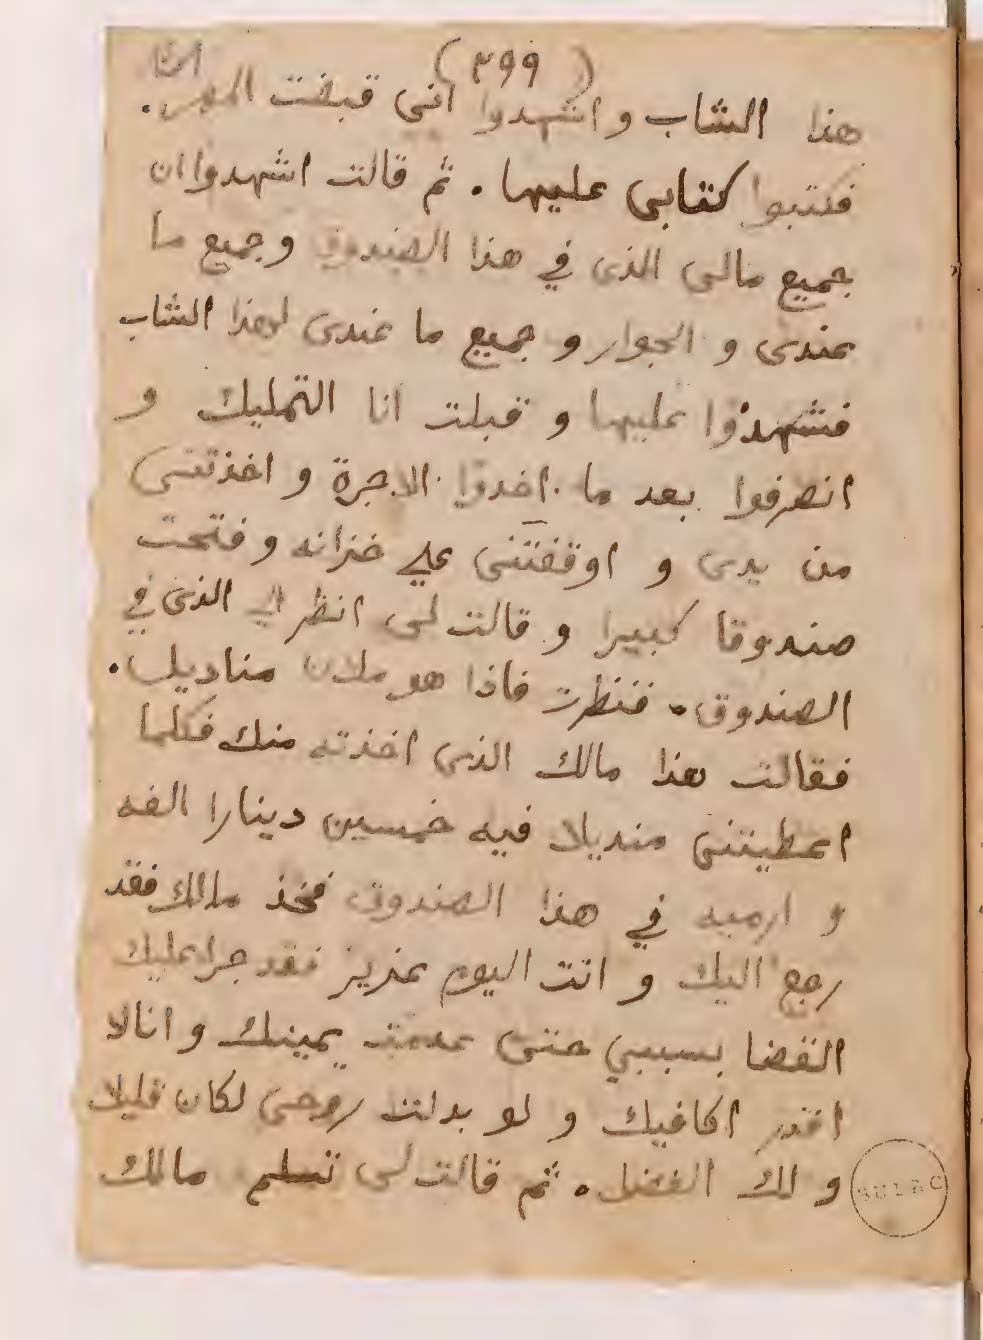 (٣٩٩)
هذا الشاب و اشهدوا انى قبضت المهر.
فكتبوا كتابى عليها. ثم قالت اشهدوا ان
جميع مالى الذى في هذا الصندوق و جميع ما
عندى و الجوار و جميع ما عندى لهذا الشاب
فشهدوا عليها و قبلت انا التمليك و
انصرفوا بعد ما اخدوا الاجرة و اخذتنى
من يدى و اوقفتنى علي خزانه و فتحت
صندوقا كبيرا و قالت لى انظر الي الذى في
الصندوق. فنظرت فاذا هو ملان مناديل.
فقالت هذا مالك الذى اخذته منك فكلما
اعطيتنى منديلا فيه خمسين دينارا الفه
و ارميه في هذا الصندوق فخذ مالك فقد
رجع اليك و انت اليوم عزيز فقد جرا عليك
القضا بسببي حتى عدمت يمينك و انا لا
اقدر اكافيك و لو بدلت روحى لكان قليلا
و لك الفضل. ثم قالت لى تسلم مالك
BULAC